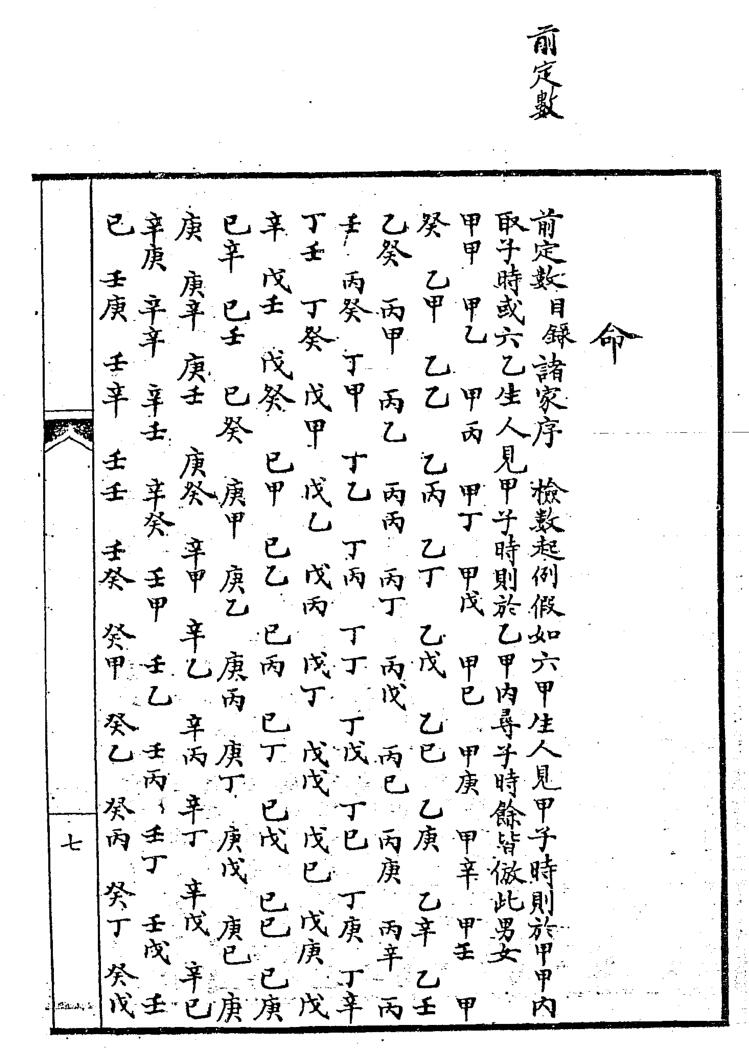 前定數
命
前定數目錄諸家序 檢數起例假如六甲生人見甲子時則於甲甲內
取子時或六乙生人見甲子時則於乙甲內尋子時餘皆倣此男女
甲甲 甲乙 甲丙 甲丁 甲戊 甲巳 甲庚 甲辛 甲壬 甲
癸 乙甲 乙乙 乙丙 乙丁 乙戊 乙巳 乙庚 乙辛 乙壬
乙癸 丙甲 丙乙 丙丙 丙丁 丙戊 丙巳 丙庚 丙辛 丙
壬 丙癸 丁甲 丁乙 丁丙 丁丁 丁戊 丁巳 丁庚 丁辛
丁壬 丁癸 戊甲 戊乙 戊丙 戊丁 戊戊 戊巳 戊庚 戊
辛 戊壬 戊癸 巳甲 巳乙 巳丙 巳丁 巳戊 巳巳 巳庚
巳辛 巳壬 巳癸 庚甲 庚乙 庚丙 庚丁 庚戊 庚巳 庚
庚 庚辛 庚壬 庚癸 辛甲 辛乙 辛丙 辛丁 辛戊 辛巳
辛庚 辛辛 辛壬 辛癸 壬甲 壬乙 壬丙 壬丁 壬戊 壬
巳 壬庚 壬辛 壬壬 壬癸 癸甲 癸乙 癸丙 癸丁 癸戊
七